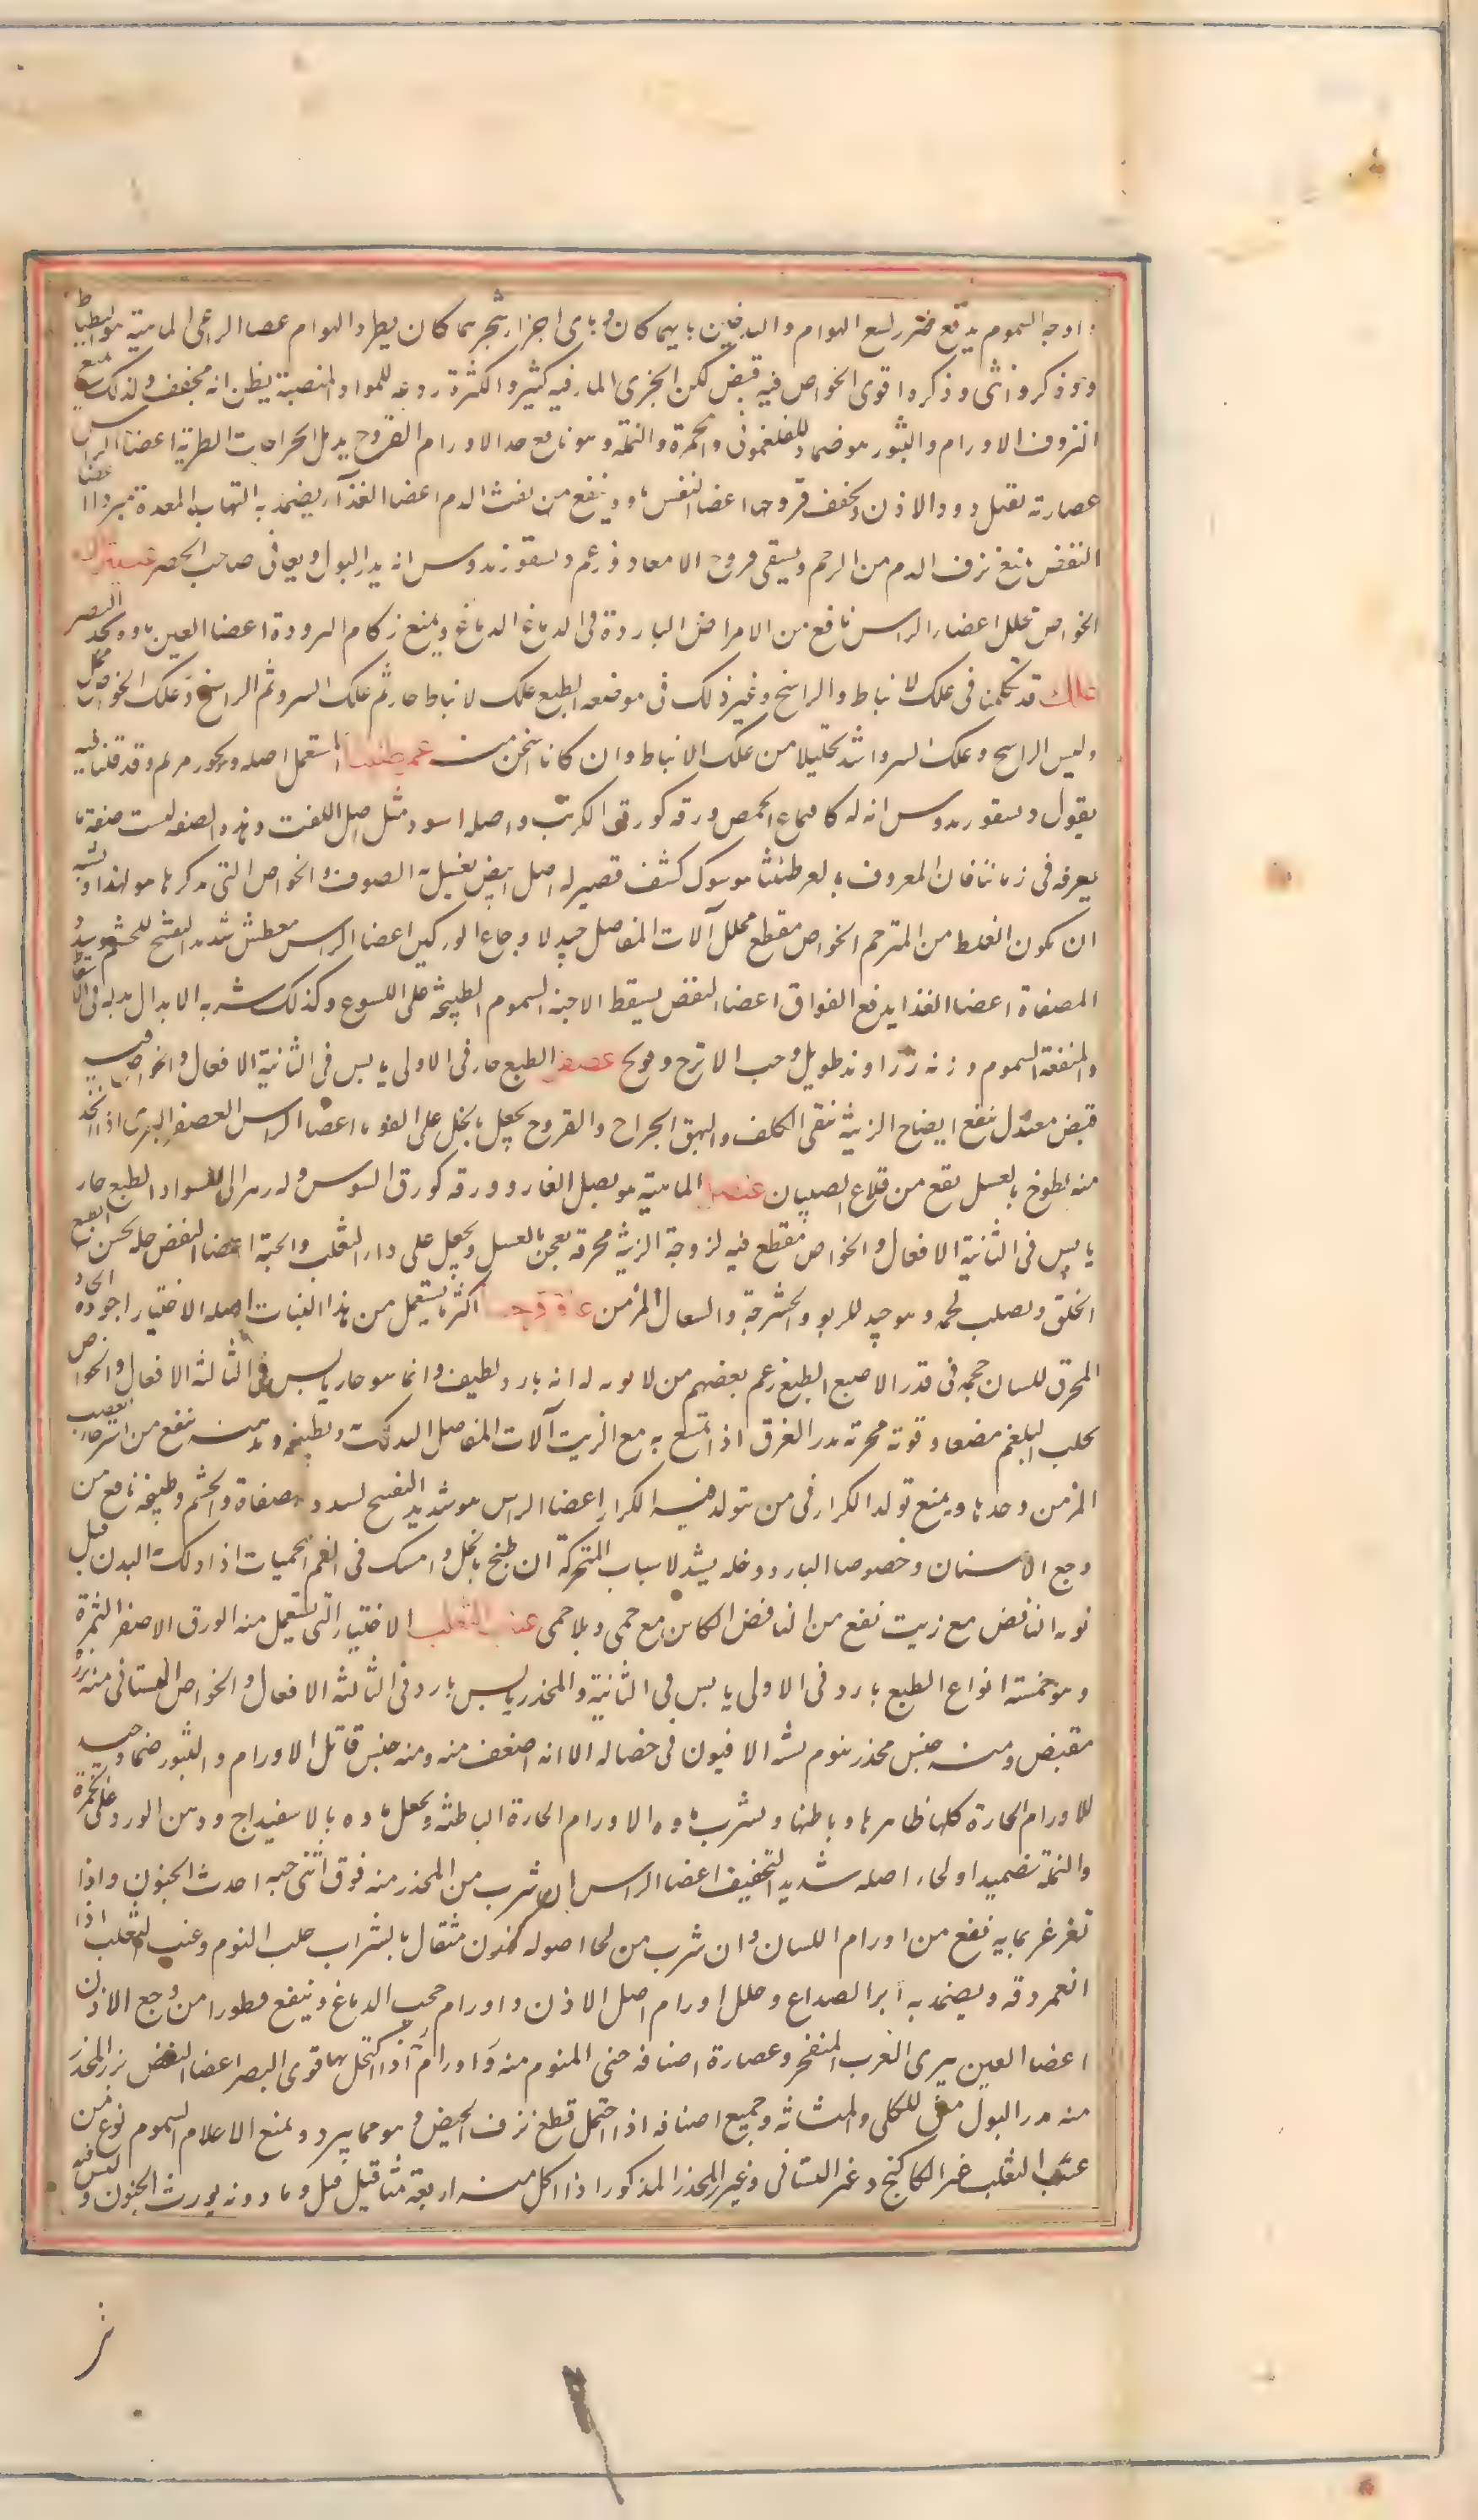 اوجه السموم يدفع ضرر لسع الهوام والدفين بايهما كان وباى اجزاء شجر بما كان يطرد الهوام عصا الراعى الماهية هو البطباط
وهو ذكر وانثى وذكروا قوى الخواص فيه قبض لكن الجزى المار فيه كثير والكثرة ردعه للمواد المنصبة يظن انه مجفف ولذلك يمنع
النزوف الاورام والبثور هو ضماد للفلغمونى والحمرة والنملة وهو نافع جدا الاورام القروح يدمل الجراحات الطرية اعضا الراس
عصارته يقتل دود الاذن ويجفف قروحها اعضا النفس ماوه ينفع من نفث الدم اعضا الغذآ يضمد به التهاب المعدة مبردا اعضا
النفض يمنع نزف الدم من الرحم ويسقى قروح الامعاء وزعم ديسقوريدوس انه يدر البول ويعافى صاحب الحصر
الخواص محلل اعضاء الراس نافع من الامراض الباردة فى الدماغ الدماغ ويمنع زكام البرودة اعضا العين ماوه يحد البصر
علك قد تكلمنا فى علك الانباط والراسخ وغير ذلك فى موضعه الطبع علك الانباط حار ثم علك السرو ثم الراسخ وعلك الخواص محلل
وليس الراسخ وعلك السرو اشد تحليلا من علك الانباط وان كانا اسخن منه عرطنيثا يستعمل اصله وبخور مريم وقد قلنا فيه
يقول ديسقوريدوس انه له كاقماع الحمص ورقه كورق الكرنب واصله اسود مثل اصل اللفت وهذه الصفة ليست صفة ما
يعرفه فى زماننا فان المعروف بالعرطنيثا هو شوك كثف قصير له اصل ابيض يغسل به الصوف والخواص التى يذكرها هو لهذا ويشبه
ان يكون الغلط من المترجم الخواص مقطع محلل آلات المفاصل جيد لاوجاع الوركين اعضا الراس معطش شديد التفتيح للخشم وسدد
المصفاة اعضا الغذا يدفع الفواق اعضا النفض يسقط الاجنة السموم الطبيخه على اللسوع وكذلك شربه الابدال بدله فى
والمنفعة السموم وزنه زراوند طويل وحب الاترج وفوتنج عصفر الطبع حار فى الاولى يابس فى الثانية الافعال والخواص فيه
قبض معتدل نفع ايضاح الزينة ينقى الكلف والبهق الجراح والقروح يجعل بالخل على القوباء اعضا الراس العصفر البرى اذا اتخذ
منه لطوخ بالعسل نفع من قلاع الصبيان عنصل الماهية هو بصل الفار وورقه كورق السوس وله زهر الى السواد الطبع حار
يابس فى الثانية الافعال والخواص مقطع فيه لزوجة الزينة محرقه يعجن بالعسل ويجعل على داء الثعلب والحية اعضا النفض خله يحسن
الخلق ويصلب لحمه وهو جيد للربو والحشرجة والسعال المزمن عاقرقرحا اكثر ما يستعمل من هذا النبات اصله الاختيار اجوده الحاد
المحرق للسان حجمه فى قدر الاصبع الطبع زعم بعضهم من لا يوبه له انه بارد لطيف وانما هو حار يابس فى الثالثة الافعال والخواص
يجلب البلغم مضغا وقوته محرقة يدر العرق اذا تمسح به مع الزيت آلات المفاصل الدلك وطبيخه ودهنه ينفع من استرخاء العصب
المزمن وحدها ويمنع تولد الكزاز فى من يتولد فيه الكزاز اعضا الراس هو شديد التفتيح لسدد المصفاة والخشم وطبيخه نافع من
وجع الاسنان وخصوصا البارد وخله يشد الاسباب المتحركة ان طبخ بالخل وامسك فى الفم الحميات اذا دلك البدن قبل
نوبه النافض مع زيت نفع من النافض الكاين مع حمى وبلا حمى عنب الثعلب الاختيار التى يستعمل منه الورق الاصفر الثمرة
وهو خمسة انواع الطبع بارد فى الاولى يابس فى الثانية والمخدر يابس بارد فى الثالثة الافعال والخواص البستانى منه
مقبض ومنه جنس مخدر ينوم يشبه الافيون فى خصاله الا انه اضعف منه ومنه جنس قاتل الاورام والبثور ضماد جيد
للاورام الحارة كلها ظاهرها وباطنها ويشرب ماوه الاورام الحارة الباطنة ويجعل ماوه بالاسفيداج ودهن الورد على الحمرة
والنملة تضميدا ولحاء اصله شديد التجفيف اعضا الراس ان شرب من المخدر منه فوق اثنى حبه احدث الجنون واذا
تغرغر بمايه نفع من اورام اللسان وان شرب من لحا اصوله مثقال بالشراب جلب النوم وعنب الثعلب اذا
انعم دقه ويضمد به ابرا الصداع وحلل اورام اصل الاذن واورام حجب الدماغ وينفع قطورا من وجع الاذن
اعضا العين يبرى الغرب المنفجر وعصارة اصنافه حتى المنوم منه واورام اذا اكتحل بها قوى البصر اعضا النفض بزر المخدر
منه مدر البول منق للكلى والمثانة وجميع اصنافه اذا احتمل قطع نزف الحيض وهو مما يبرد ويمنع الاحلام السموم نوع من
عنب الثعلب غير الكاكنج وغير البستانى وغير المخدر المذكور اذا اكل منه اربعة مثاقيل قتل وما دونه يورث الجنون وليس فيه